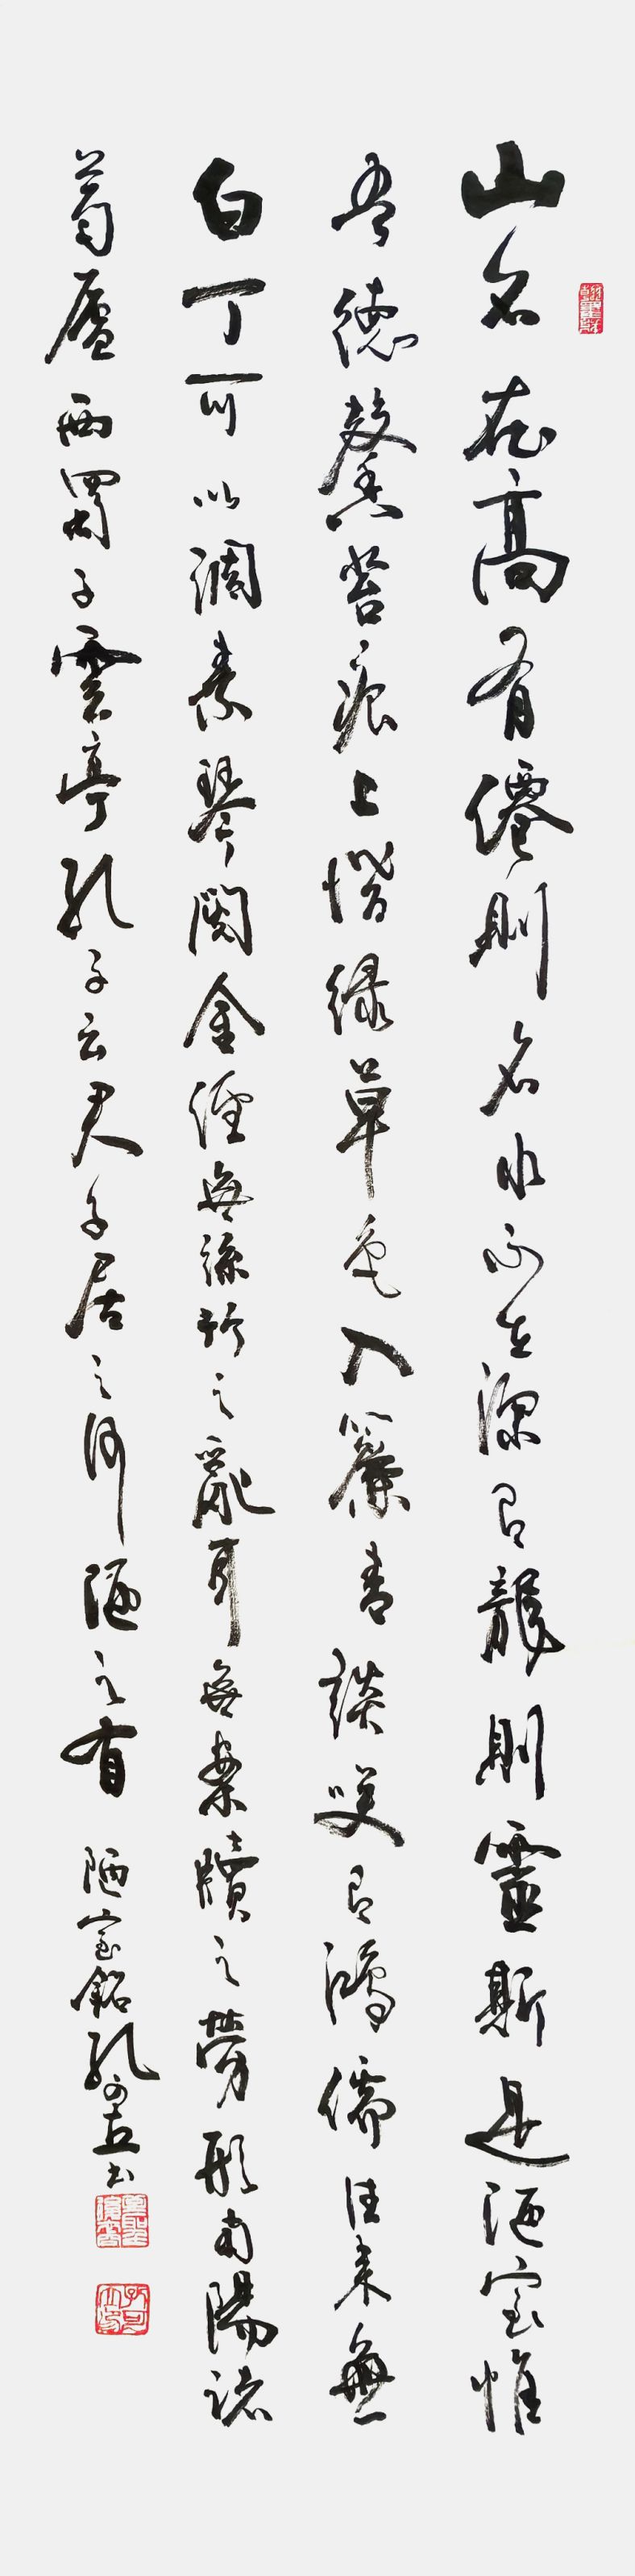 山名在高有僊則名水不在深有龍則靈斯是陋室惟
吾德馨苔痕上階綠草色入簾青談咲有鴻儒往來無
白丁可以調素琴閱金經無絲竹之亂耳無案牘之勞形南陽諸
葛廬西蜀子雲亭孔子云君子居之何陋之有 陋室銘 孔可立書